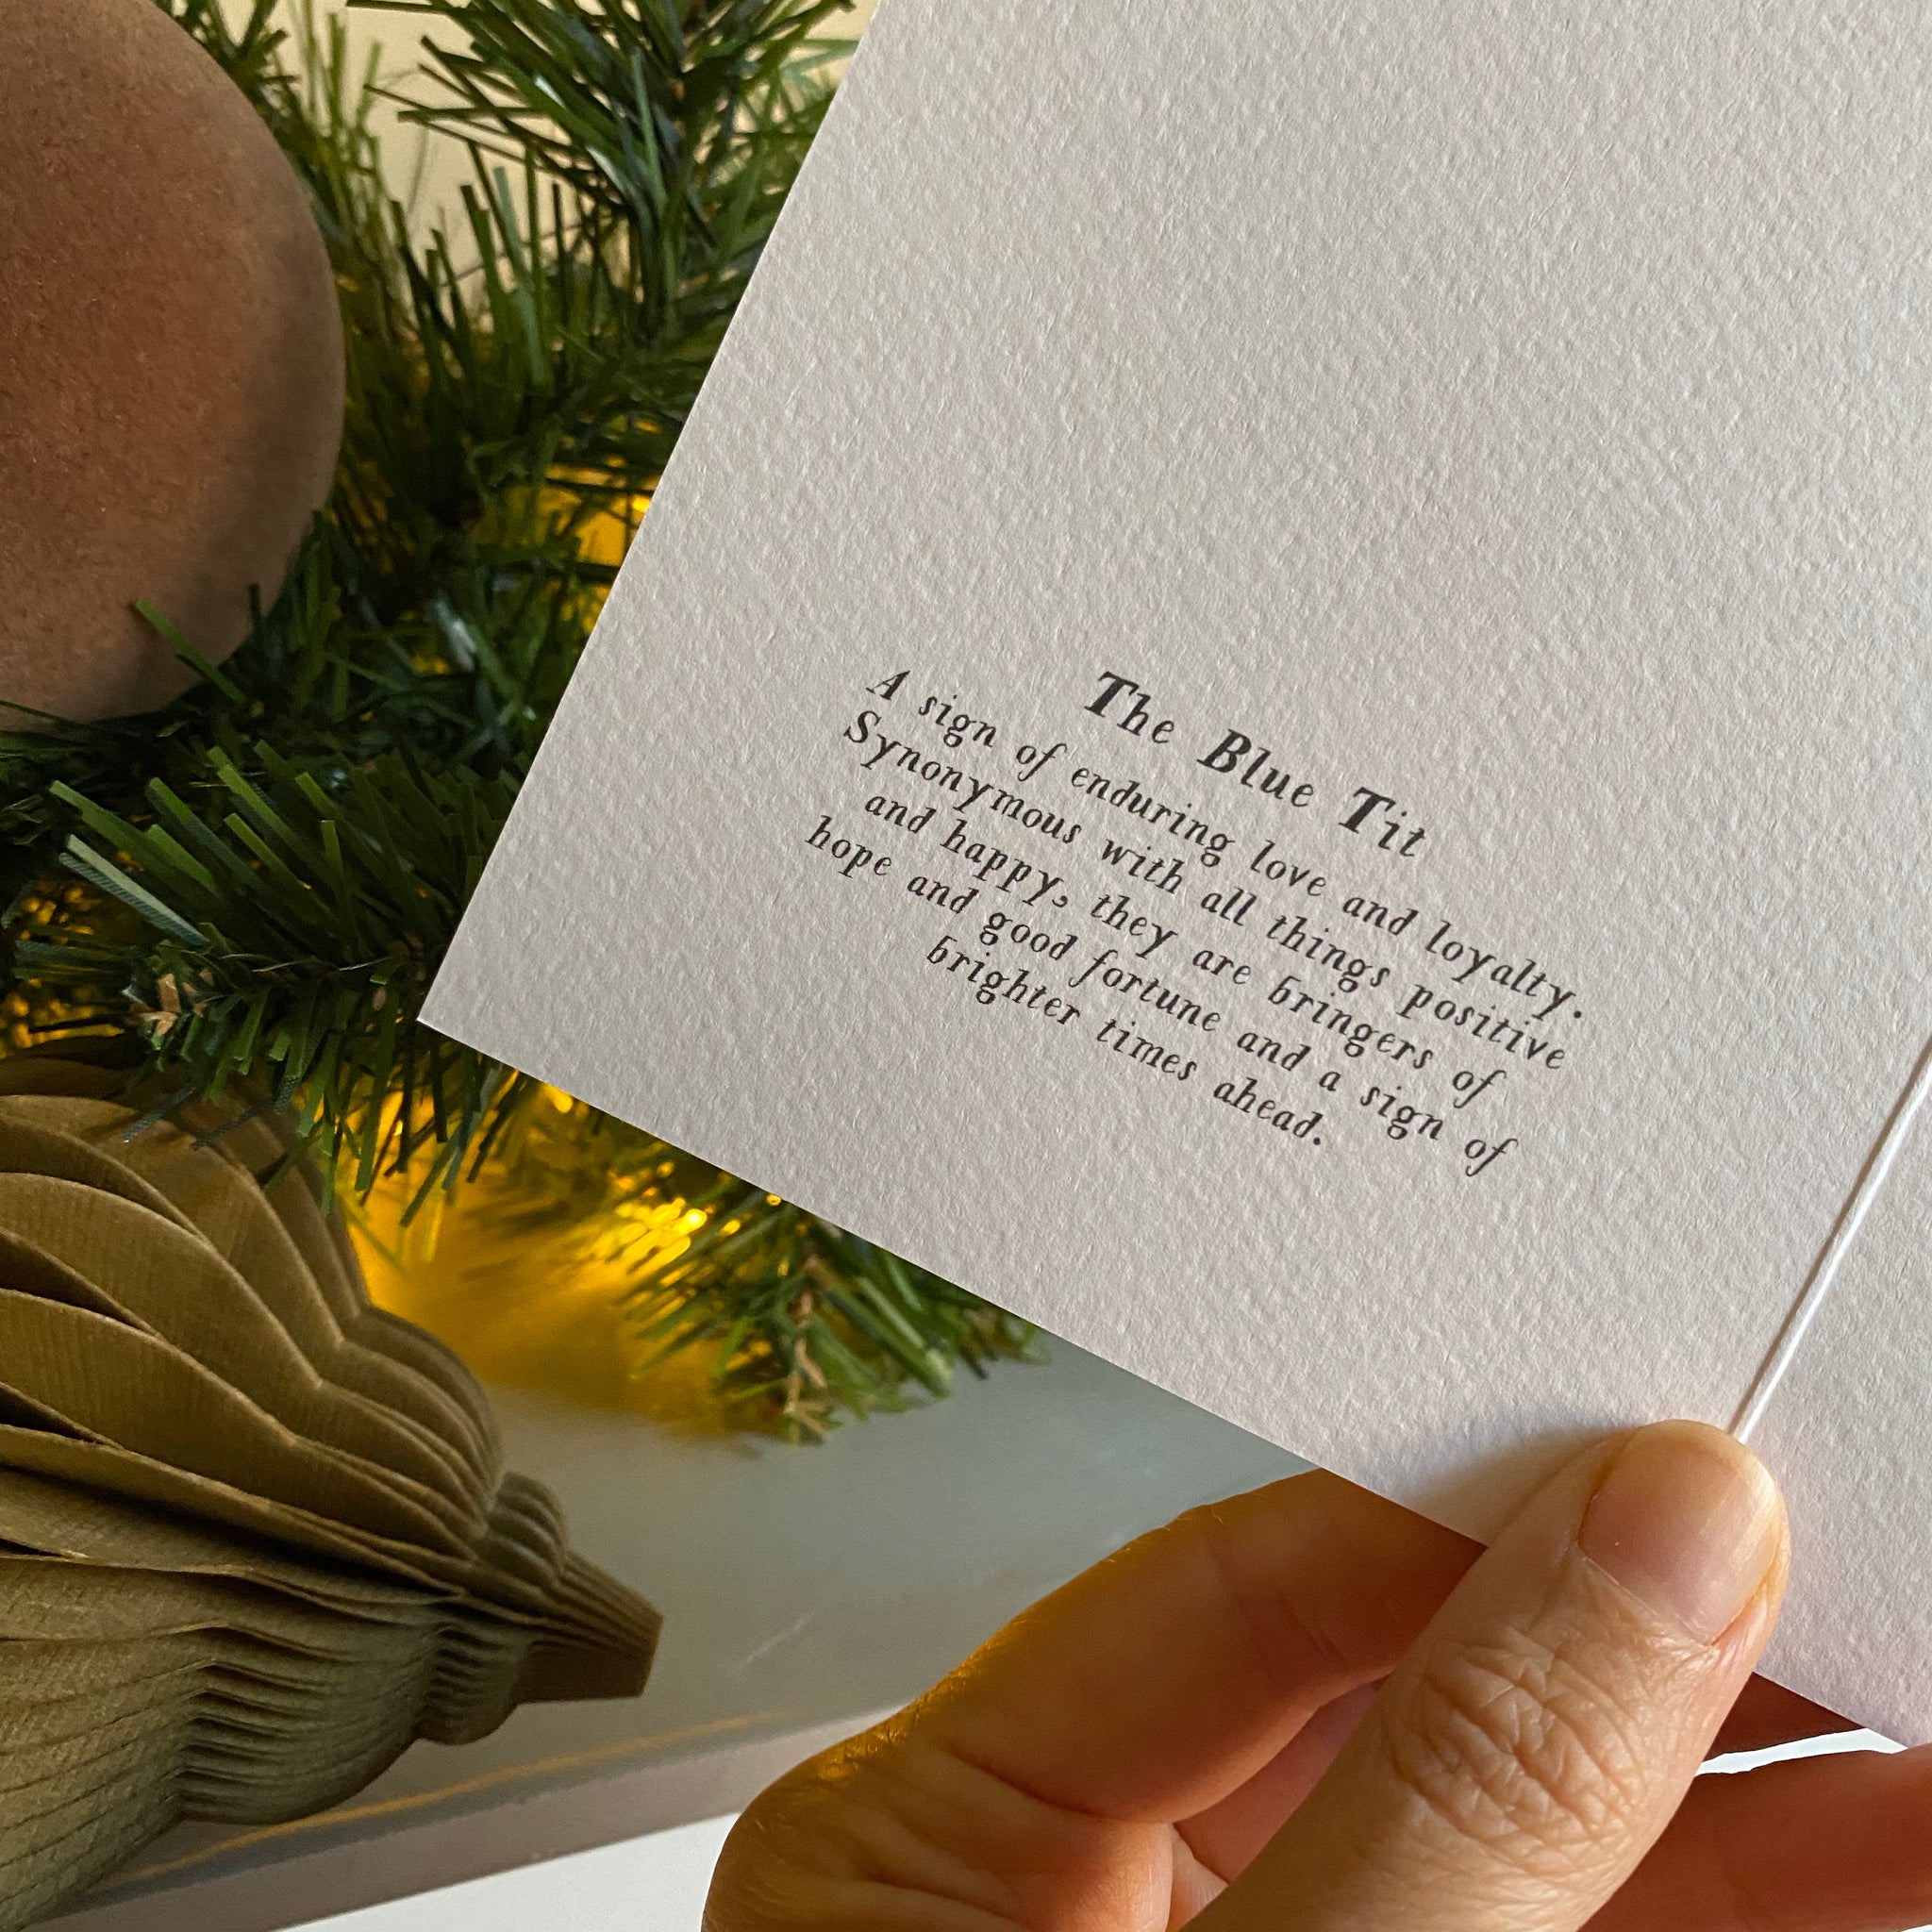 The Blue Tit
A sign of enduring love and loyalty.
Synonymous with all things positive
and happy, they are bringers of
hope and good fortune and a sign of
brighter times ahead.